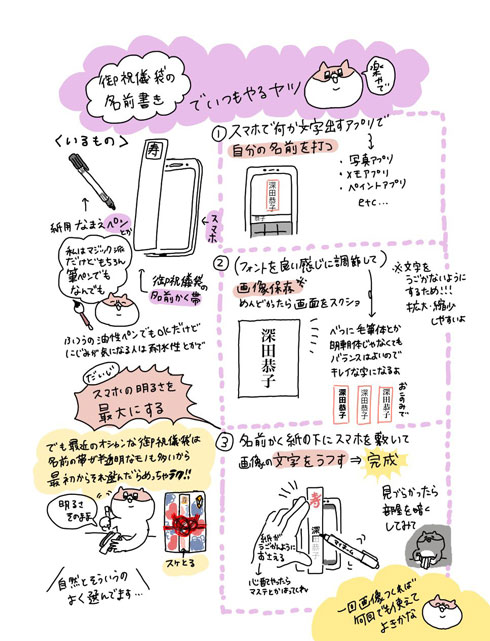 御祝儀袋の
名前書き
でいつもやるヤツ
楽やで
<いるもの>
寿
紙用なまえペンとか
スマホ
御祝儀袋の
名前かく帯
私はマジック派
だけどもちろん
筆ペンでも
なんでも
ふつうの油性ペンでもOKだけど
にじみが気になる人は耐水性とかで
①スマホで何か文字出すアプリで
自分の名前を打つ
深田恭子
恭子
・写真アプリ
・メモアプリ
・ペイントアプリ
etc...
②(フォントを良い感じに調節して)
画像保存
めんどかったら画面をスクショ
※文字を
うごかないように
するため!!!
拡大・縮小
しやすいよ
深田恭子
べつに毛筆体とか
明朝体じゃなくても
バランスはよいので
キレイな字になるよ
深田恭子
深田恭子
深田恭子
おこのみで
だいじ
スマホの明るさを
最大にする
③名前かく紙の下にスマホを敷いて
画像の文字をうつす⇒完成
でも最近のオシャンな御祝儀袋は
名前の帯が半透明なモノも多いから
最初からそれ選んだらめっちゃラク!!
明るさ
そのまま
スケとる
自然とそういうの
よく選んでます…
寿
深田恭子
紙が
うごかんように
おさえる
心配やったら
マステとかはってね
見づらかったら
部屋を暗く
してみて
一回画像つくれば
何回でも使えて
よきかな